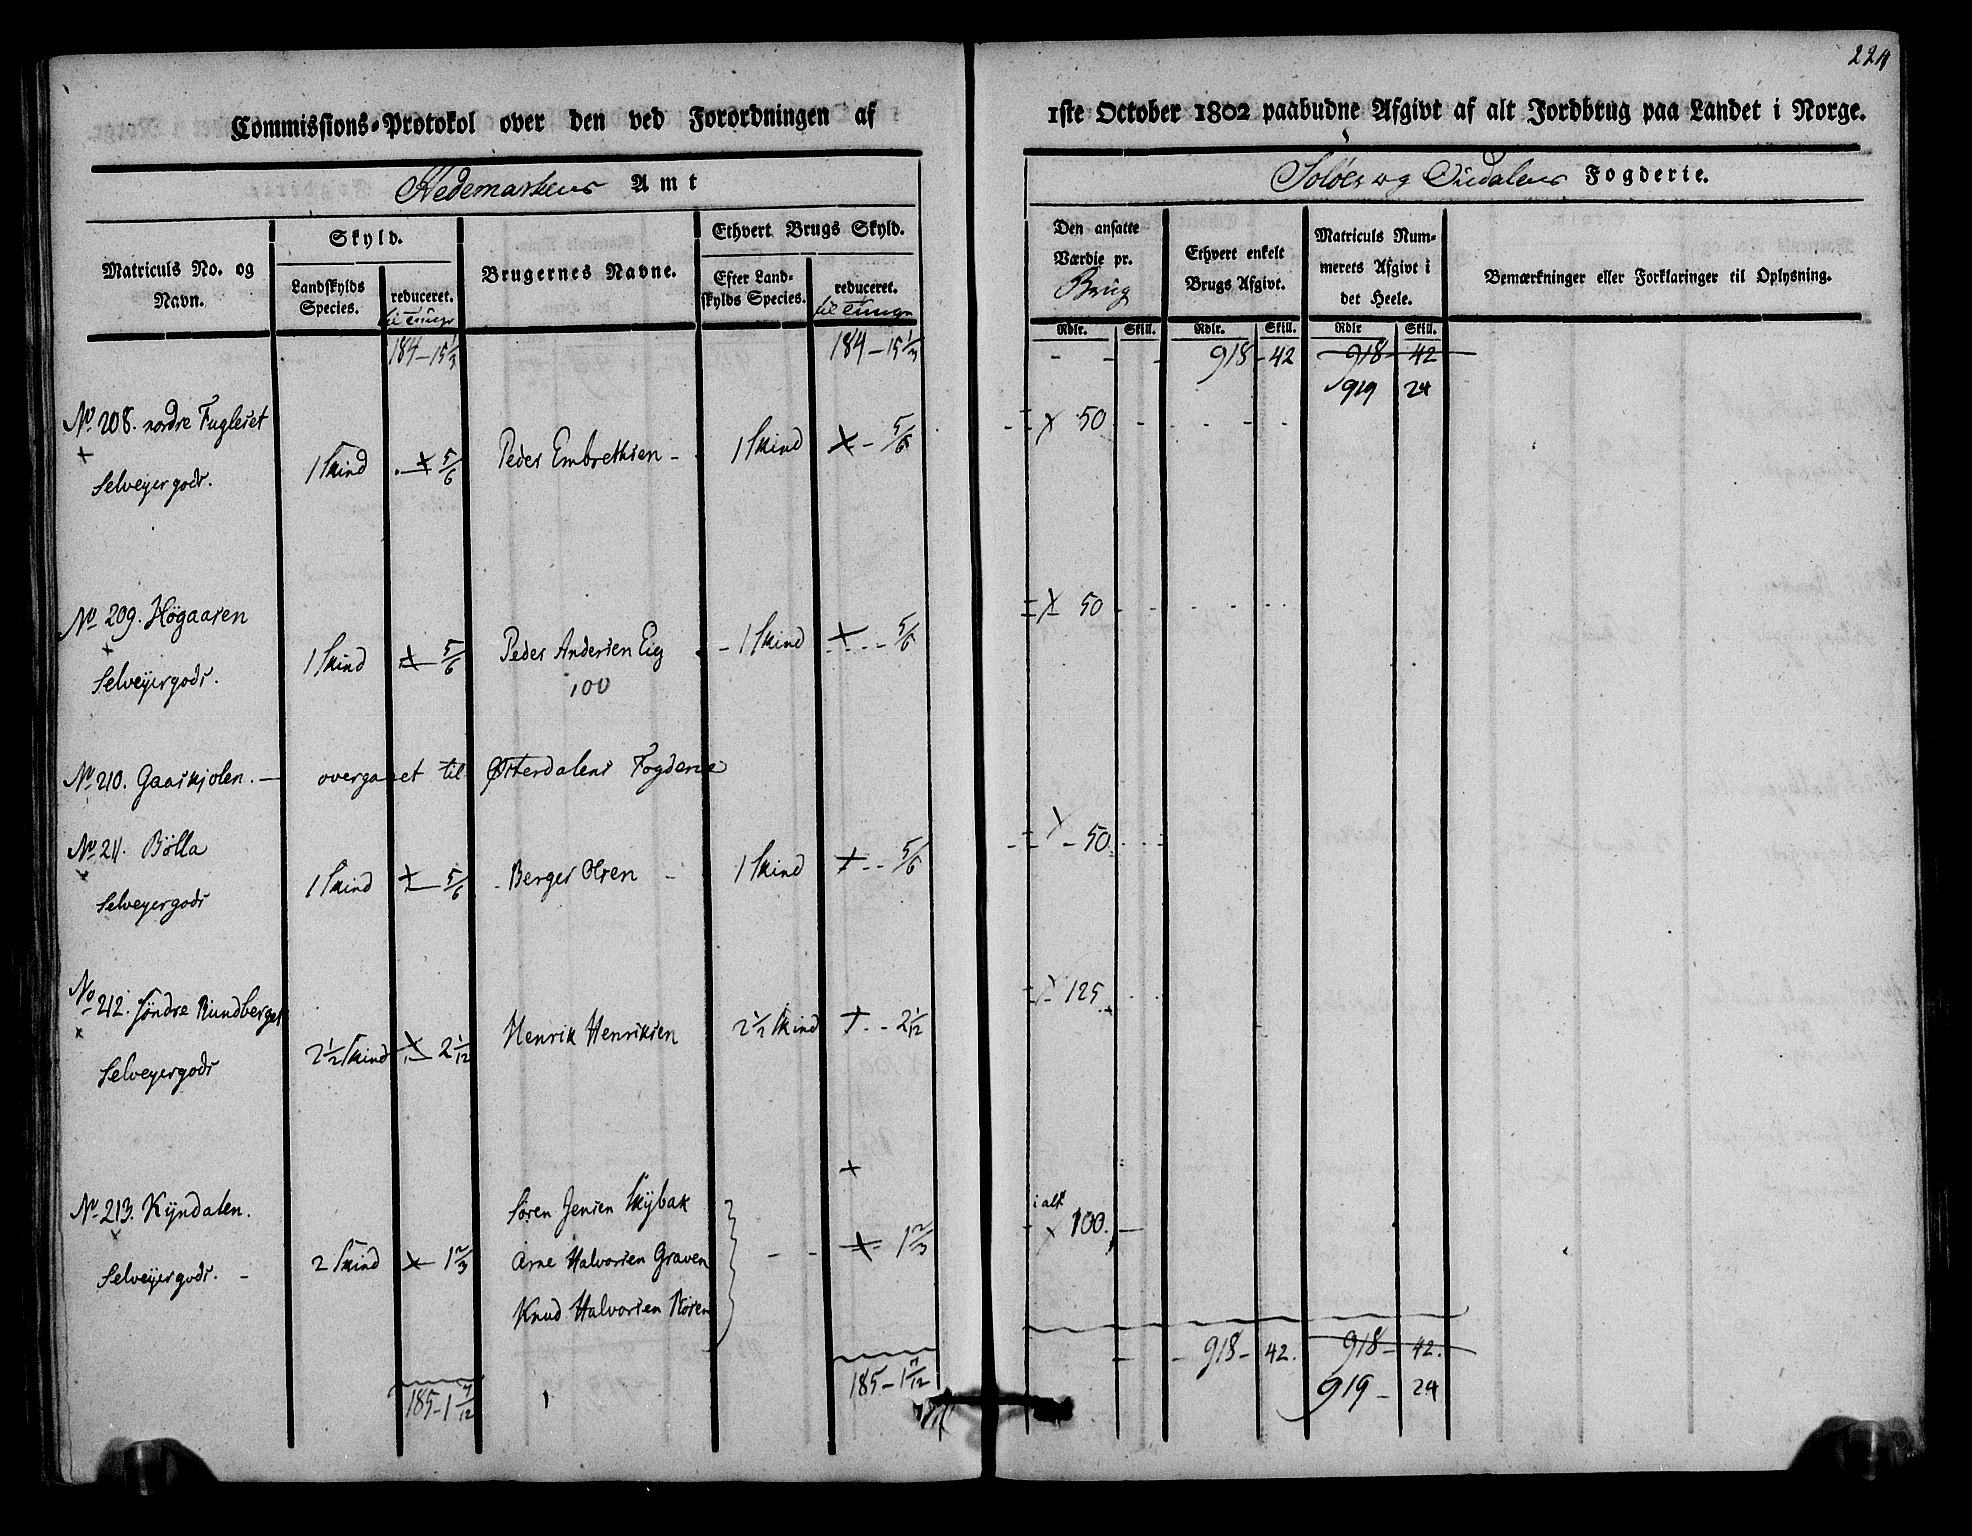 224
Commissions-Protokol over den ved Forordningen af 1ste October 1802 paabudne Afgivt af alt Jordbrug paa Landet i Norge.
Hedemarkens Amt
Soløer og Oudalens Fogderie.
Matriculs No. og Navn.
Skyld.
Landskylds Species.
reduceret.
til Tunge
Brugernes Navne.
Ethvert Brugs Skyld.
Efter Landskylds Species.
reduceret.
til Tunge
Den ansatte Værdie pr. Brug
Ethvert enkelt Brugs Afgivt.
Matriculs Nummerets Afgivt i det Heele.
Bemærkninger eller Forklaringer til Oplysning.
Rdlr. Skill. Rdlr. Skill. Rdlr Skill.
184 - 15 1/3 184 - 15 1/3 - - - 918 - 42 918 42
919 24
No 208. nordre Fugleset 1 Skind 5/6 Peder Embretsen - 1 Skind 5/6 50
Selveyergods.
No 209. Högaaren 1 Skind 5/6 Peder Andersen Eig 1 Skind 5/6 50
Selveyergods. 100
No 210. Gaaskjolen. - overgaaet til Østerdalens Fogderie
No 211. Bölla 1 Skind 5/6 Berger Olsen - 1 Skind 5/6 50.
Selveyergods
No 212. Söndre Rundberget 2 1/2 Skind 2 1/12 Henrik Henriksen 2 1/2 Skind 2 1/12 125
Selveyergods
No 213. Kÿndalen. Sören Jensen Skÿbak i alt
Selveyergods. - 2 Skind 1 2/3 Arne Halvorsen Graven - - 1 2/3 100. -
Knud Halvorsen
185 - 1 7/12 185 - 1 7/12 - - 918 - 42. 918 - 42.
919 - 24